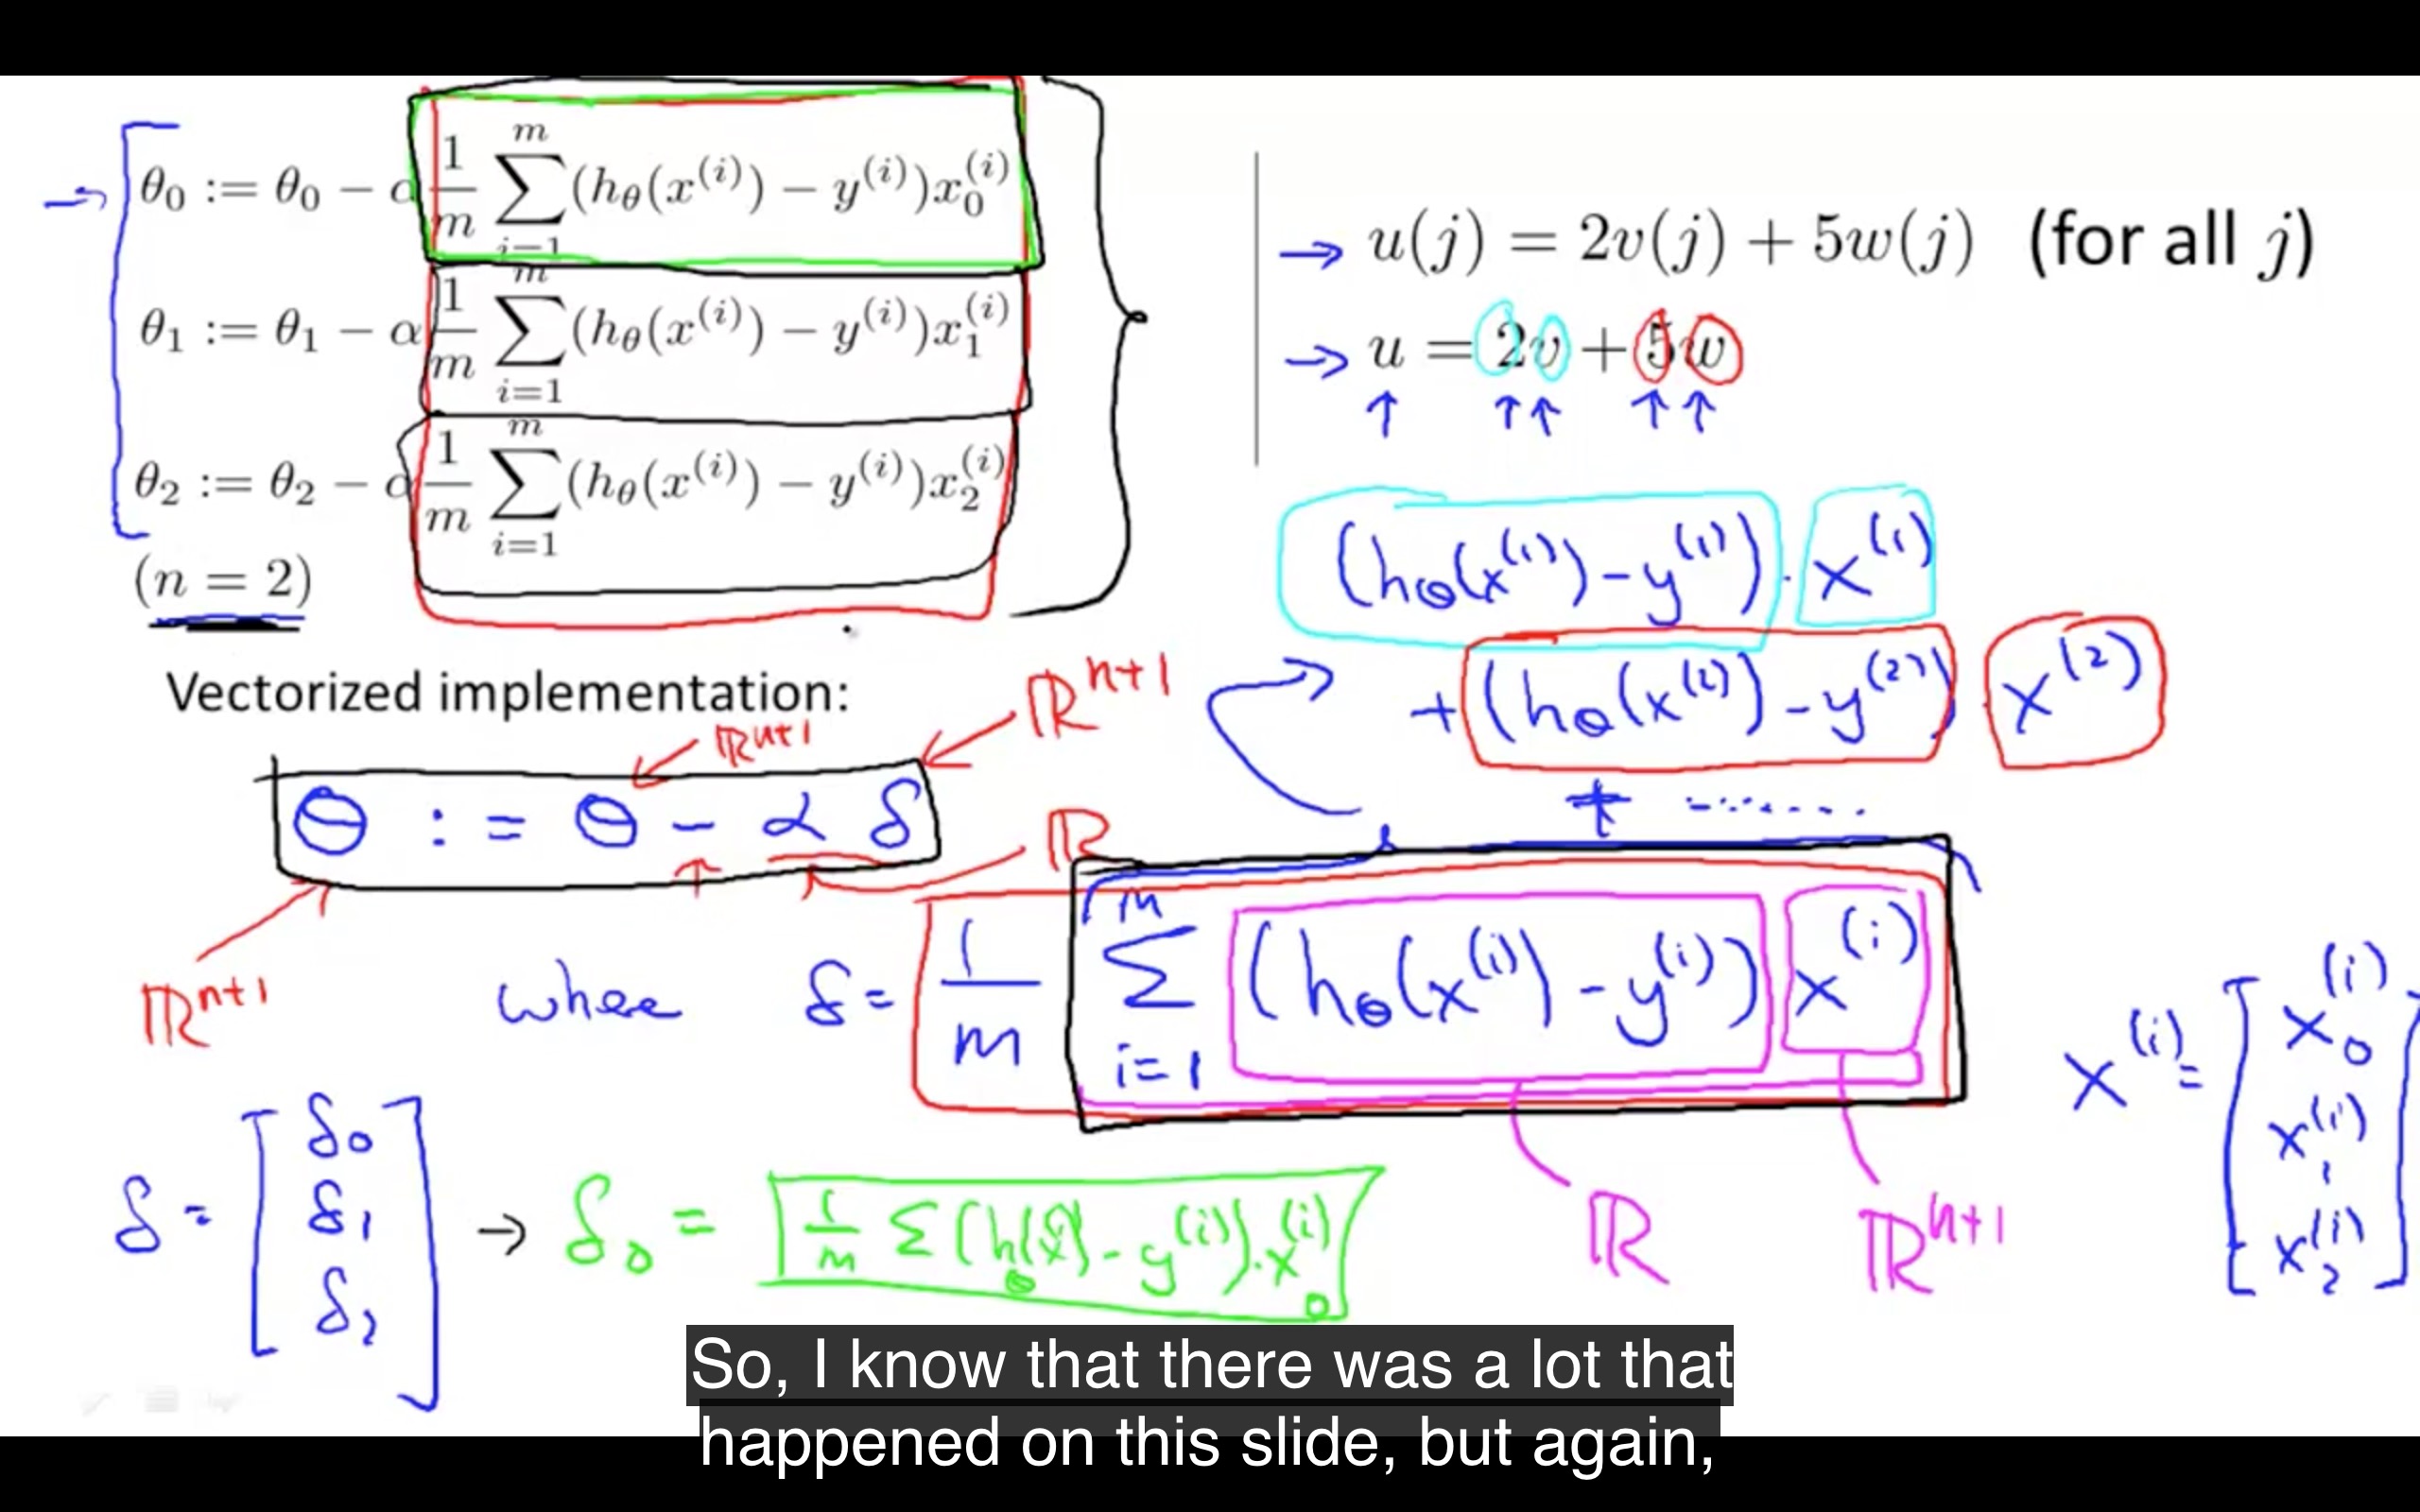 θ₀ := θ₀ − α 1/m ∑_{i=1}^{m} (h_θ(x^{(i)}) − y^{(i)}) x₀^{(i)}
θ₁ := θ₁ − α 1/m ∑_{i=1}^{m} (h_θ(x^{(i)}) − y^{(i)}) x₁^{(i)}
θ₂ := θ₂ − α 1/m ∑_{i=1}^{m} (h_θ(x^{(i)}) − y^{(i)}) x₂^{(i)}
(n = 2)
→ u(j) = 2v(j) + 5w(j) (for all j)
→ u = 2v + 5w
↑ ↑ ↑ ↑ ↑
(h_θ(x^{(1)}) − y^{(1)}) · x^{(1)}
+ (h_θ(x^{(2)}) − y^{(2)}) · x^{(2)}
+ .......
Vectorized implementation:
ℝ^{n+1}
ℝ^{n+1}
θ := θ − α δ
ℝ
ℝ^{n+1}
where δ = 1/m ∑_{i=1}^{m} (h_θ(x^{(i)}) − y^{(i)}) x^{(i)}
ℝ ℝ^{n+1}
x^{(i)} = [x₀^{(i)} x₁^{(i)} x₂^{(i)}]
δ = [δ₀ δ₁ δ₂] → δ₀ = 1/m Σ (h_θ(x^{(i)}) − y^{(i)}) · x₀^{(i)}
So, I know that there was a lot that
happened on this slide, but again,